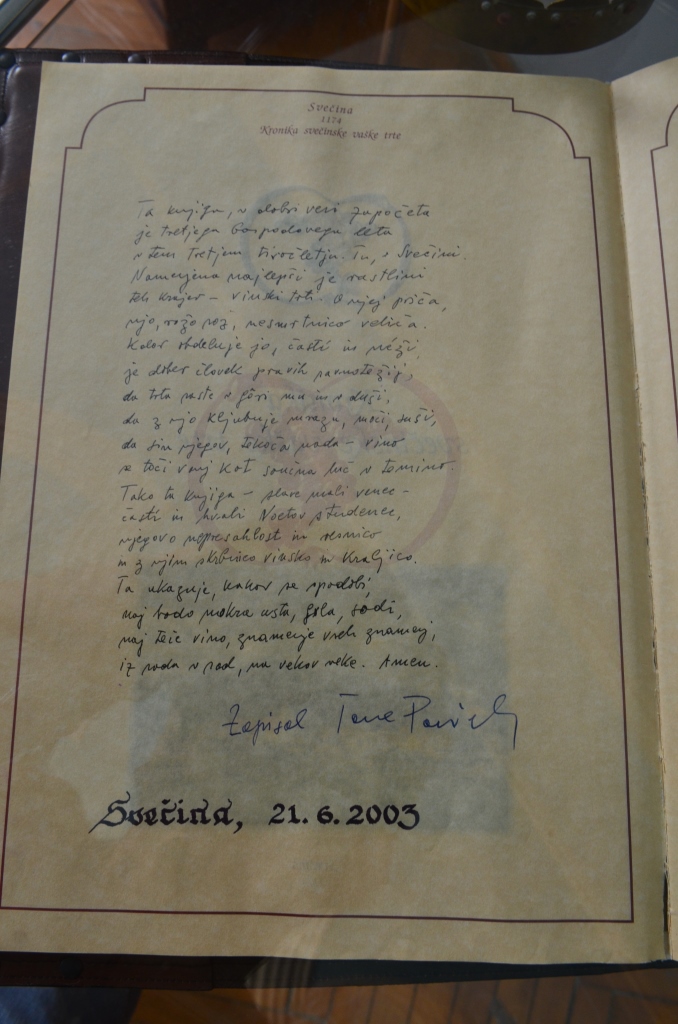 Svečina
1174
Kronika svečinske vaške trte
Ta knjiga, v dobri veri započeta
je tretjega Gospodovega leta
v tem tretjem tisočletju. Tu, v Svečini.
Namenjena najlepši je rastlini
teh krajev – vinski trti. O njej priča,
njo, rožo rož, nesmrtnico veliča.
Kdor obdeluje jo, časti in
je dober človek pravih ravnotežij,
da trta raste v gori mu in v duši,
da z njo kljubuje mrazu, moči, suši,
da sin njegov, tekoča voda – vino
se toči vanj kot sončna luč v temino.
Tako ta knjiga – slave mali venec –
časti in hvali Noetov studenec,
njegovo nepresahlost in resnico
in z njim skrbnico vinsko in Kraljico.
Ta ukazuje, kakor se spodobi,
naj bodo mokra usta, grla, sodi,
naj teče vino, znamenje vseh znamenj,
iz roda v rod, na vekov veke. Amen.
Zapisal Tone Pavček
Svečina, 21. 6. 2003